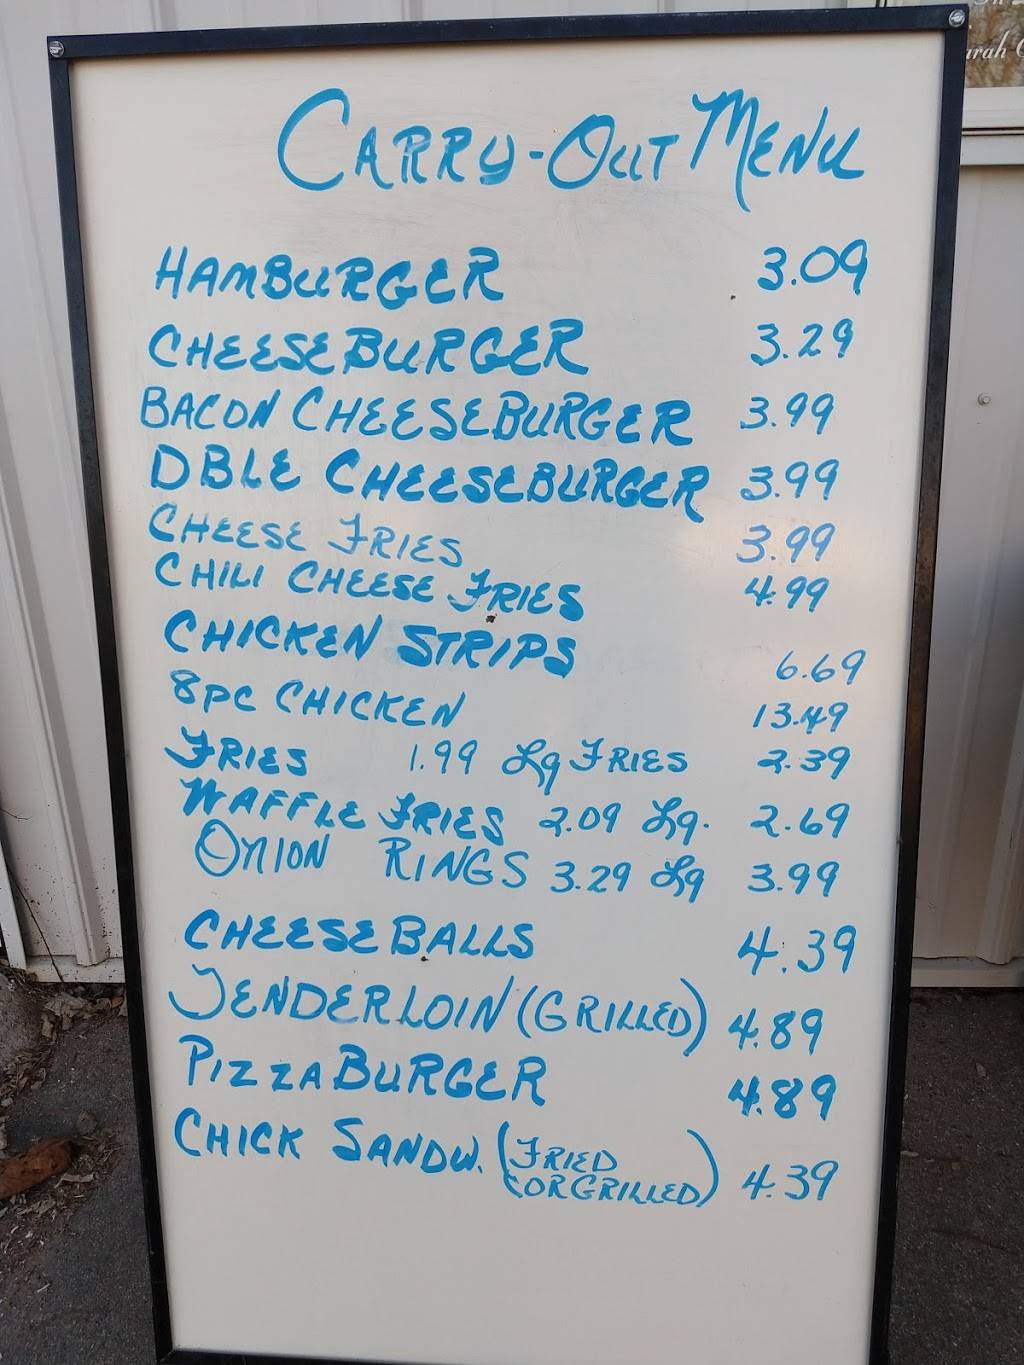 arah
CARRY-OUT MENU
HAMBURGER 3.09
CHEESEBURGER 3.29
BACON CHEESEBURGER 3.99
DBLE CHEESEBURGER 3.99
CHEESE FRIES 3.99
CHILI CHEESE FRIES 4.99
CHICKEN STRIPS 6.69
8PC CHICKEN 13.49
FRIES 1.99 Lg FRIES 2.39
WAFFLE FRIES 2.09 Lg. 2.69
ONION RINGS 3.29 Lg 3.99
CHEESE BALLS 4.39
TENDERLOIN (GRILLED) 4.89
PIZZA BURGER 4.89
CHICK SANDW. (FRIED
OR GRILLED) 4.39